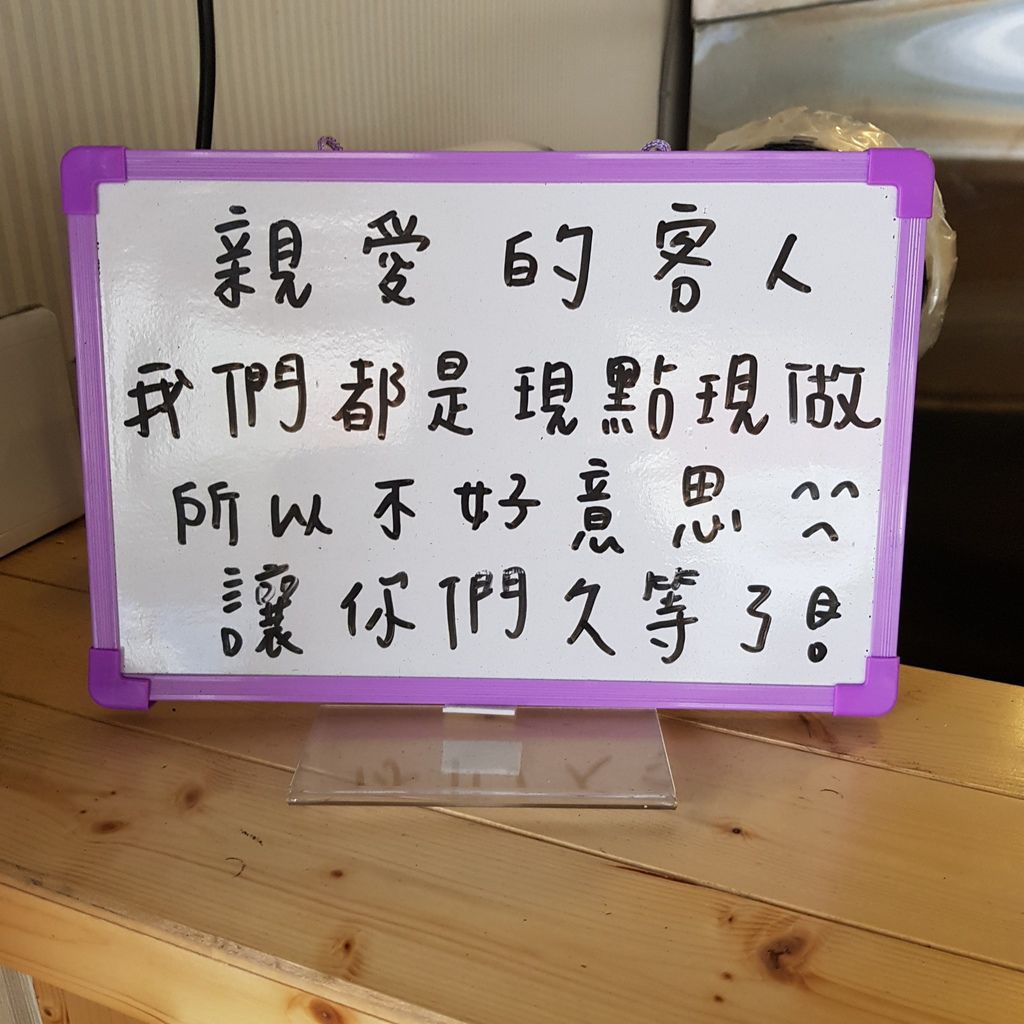 親愛的客人
我們都是現點現做
所以不好意思^^
讓你們久等了!